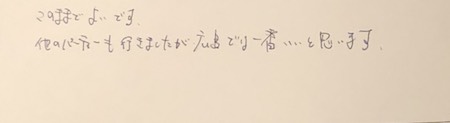 このままでよいです.
他のパーティーも行きましたが広島では一番いいと思います.